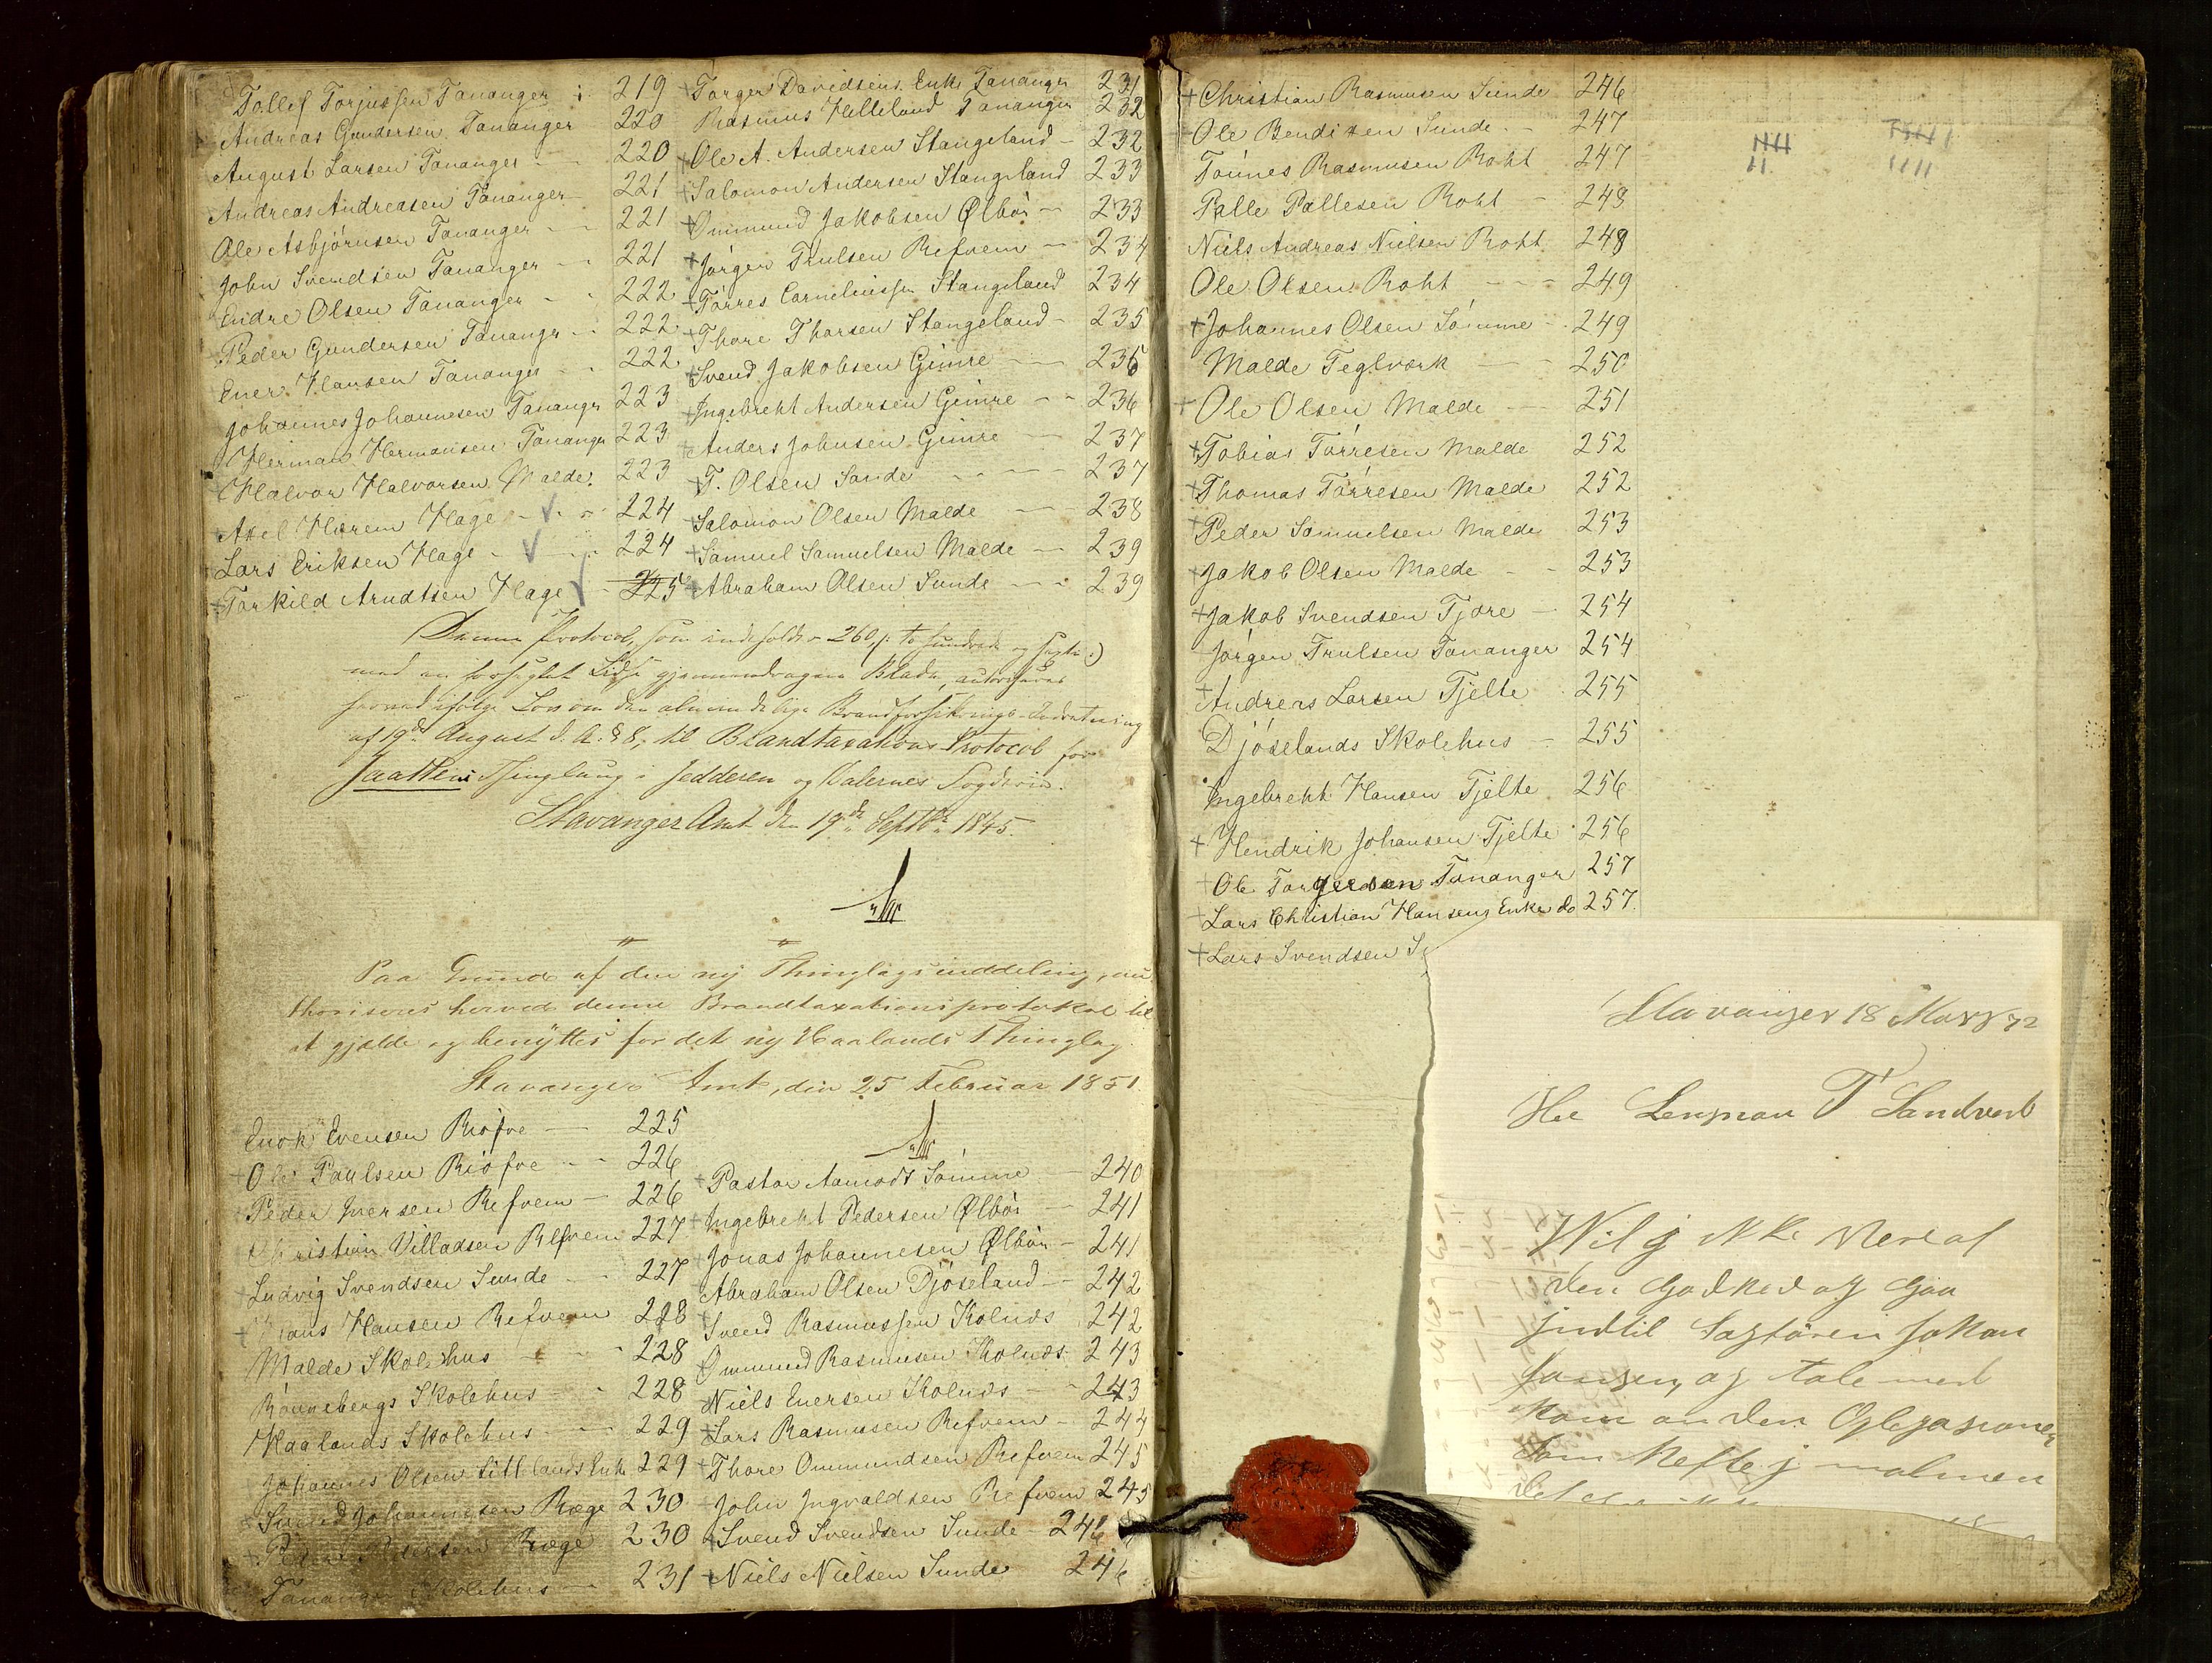 Tollef Torjussen Tananger 219
Andreas Gundersen Tananger 220
August Larsen Tananger 220
Andreas Andreasen Tananger 221
Ole Asbjörnsen Tananger 221
John Svendsen Tananger 221
Endre Olsen Tananger 222
Peder Gundersen Tananger 222
Ener Hansen Tananger 222
Johannes Johannesen Tananger 223
Herman Hermansen Tananger 223
Halvor Halvorsen Malde 223
Axel Hærem Hage 224
Lars Eriksen Hage 224
Torkild Arndtsen Hage 225
+Torger Davidsens Enke Tananger 231
Rasmus Helleland Tananger 232
+Ole A. Andersen Stangeland 232
+Salomon Andersen Stangeland 233
+Ommund Jakobsen Ølbör 233
+Jörgen Trulsen Refvem 234
+Törres Corneliussen Stangeland 234
+Thore Thorsen Stangeland 235
+Svend Jakobsen Gimre 236
+Ingebreht Andersen Gimre 236
+Anders Johnsen Gimre 237
+T. Olsen Sande 237
+Salomon Olsen Malde 238
+Samuel Samuelsen Malde 239
+Abraham Olsen Sunde 239
Denne Protocol, som indeholder 260 /: to hundrede og sexti :/
med en forseglet Lidse gjennemdragne Blade, autoriseres
herved ifølge Lov om den almindelige Brandforsikrings-Indretning
af 19de August d. A. § 8, til Brandtaxations-Protocol for
Jaattens Thinglaug i Jedderen og Dalernes Fogderie.
Stavanger Amt den 19de Septbr 1845.
Paa Grund af den ny Thinglagsinddeling, au
thoriseres herved denne Brandtaxationsprotokol til
at gjælde og benyttes for det ny Haalands Thinglag.
Stavanger Amt, den 25 Februar 1851.
Enok Evensen Riöfve 225
+Ole Paulsen Riöfve 226
Peder Iversen Refvem 226
Christian Villadsen Refvem 227
+Ludvig Svendsen Sunde 227
+Hans Hansen Refvem 228
Malde Skolehus 228
Rönnebergs Skolehus 228
Haalands Skolehus 229
Johannes Olsen Litlelands Enke 229
Svend Johannesen Ræge 230
+Peder Ræge 230
Tananger Skolehus 231
+Pastor Aamodt Sömme 240
+Ingebreht Pedersen Ølbör 241
+Jonas Johannesen Ølbör 241
Abraham Olsen Djöseland 242
+Svend Rasmussen Kolnæs 242
Ommund Rasmusen Kolnæs 243
Niels Enersen Kolnæs 243
+Lars Rasmusen Refvem 244
+Thore Ommundsen Refvem 245
+John Ingvaldsen Refvem 245
+Svend Svendsen Sunde 246
+Niels Nielsen Sunde 246
+Christian Rasmusen Sunde 246
+Ole Bendixen Sunde 247
Tönnes Rasmusen Roht 247
Palle Pallesen Roht 248
Niels Andreas Nielsen Roht 248
Ole Olsen Roht 249
+Johannes Olsen Sömme 249
Malde Teglværk 250
+Ole Olsen Malde 251
+Tobias Törresen Malde 252
+Thomas Törresen Malde 252
+Peder Samuelsen Malde 253
+Jakob Olsen Malde 253
+Jakob Svendsen Tjöre 254
Jörgen Trulsen Tananger 254
+Andreas Larsen Tjelte 255
Djöselands Skolehus 255
Ingebreht Hansen Tjelte 256
+Hendrik Johansen Tjelte 256
+Ole Torgersen Tananger 257
+Lars Christian Hansens Enke do 257
+Lars Svendsen
Stavanger 18 Marts 92
Her Lensman T Sandved
Wil j ikke være af
den Godhed og Gaa
jndtil Sagfören Johan
Jansen, og tale med
ham om den
som j malmen